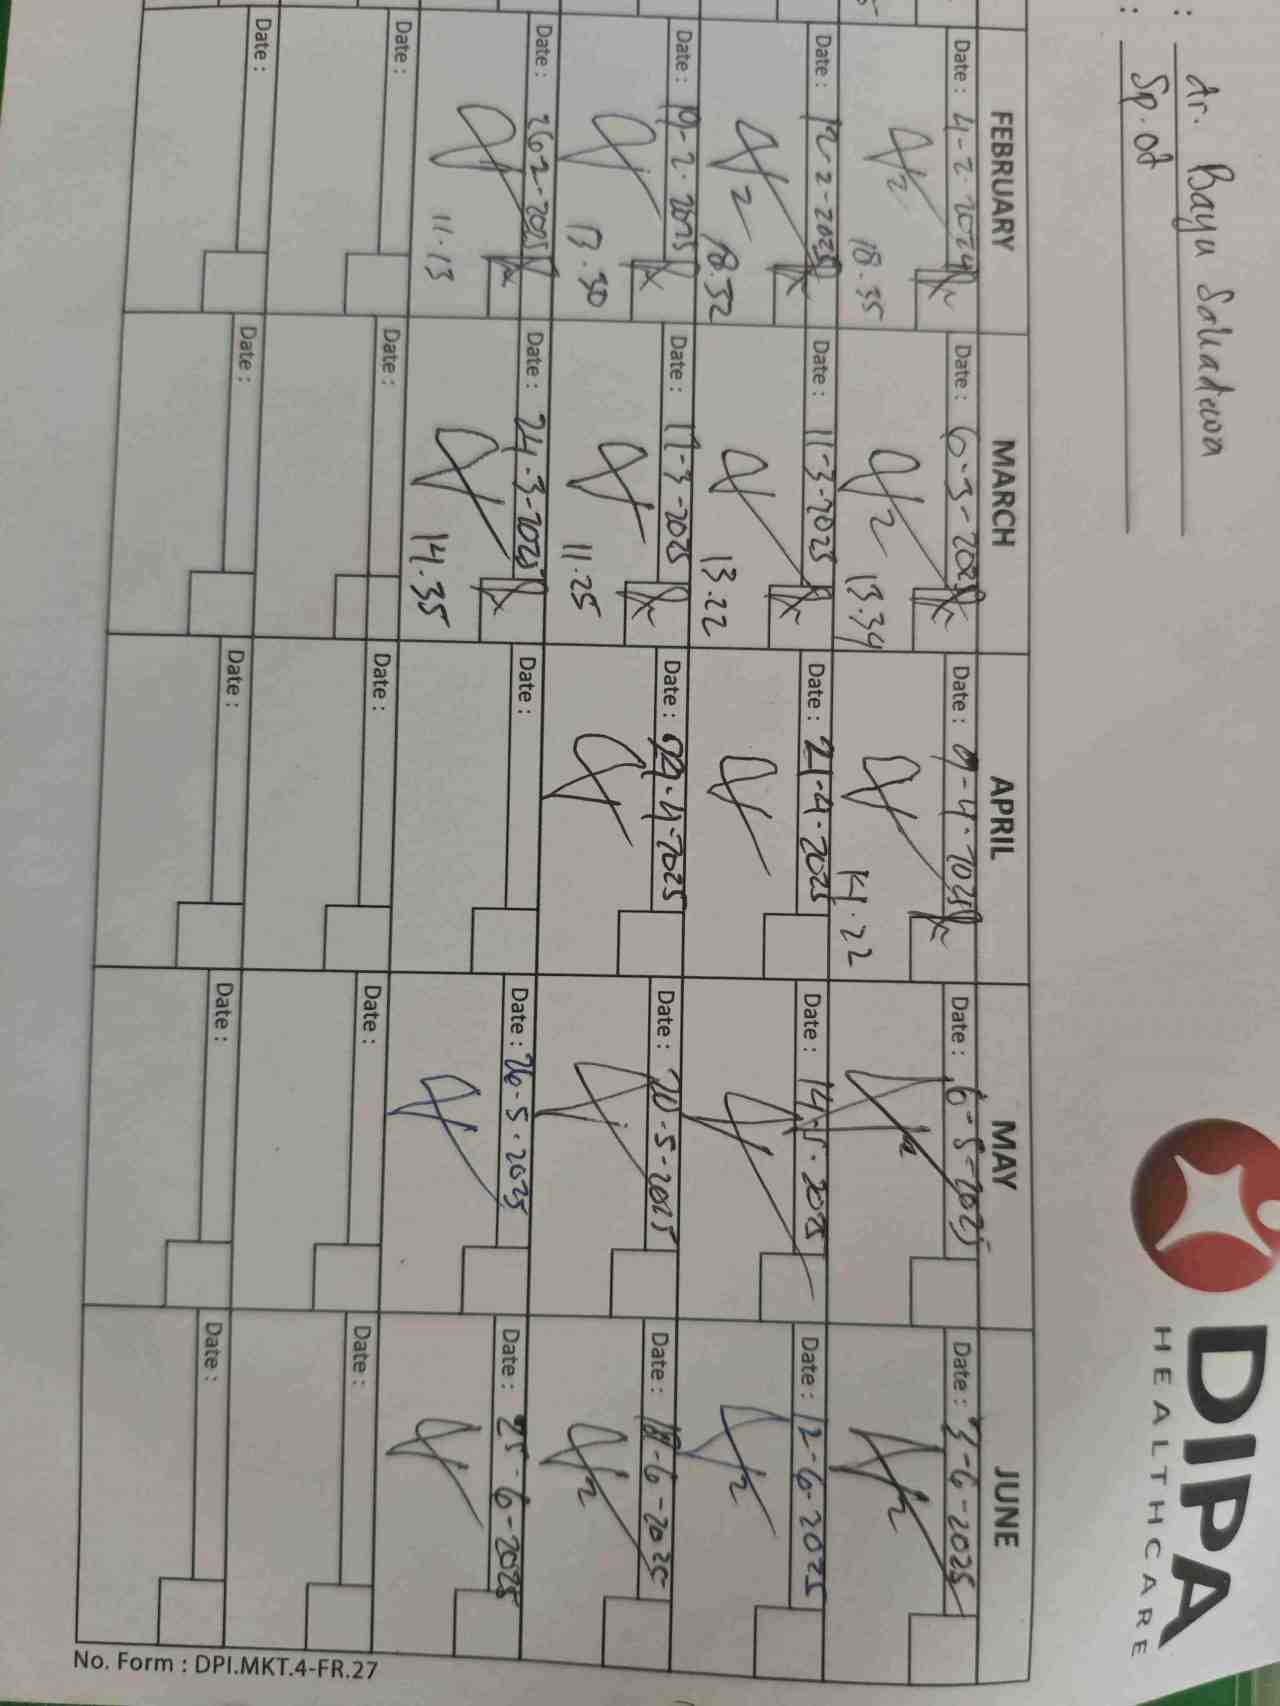 : dr. Bayu Sakadewa
: Sp. OT
DIPA
HEALTHCARE
FEBRUARY MARCH APRIL MAY JUNE
Date : 4-2-2024 Date : 6-3-2025 Date : 9-4-2025 Date : 6-5-2025 Date : 3-6-2025
18.35 13.34 14.22
Date : 12-2-2025 Date : 11-3-2025 Date : 21-4-2025 Date : 14-5-2025 Date : 12-6-2025
18.32 13.22
Date : 19-2-2025 Date : 17-3-2025 Date : 29-4-2025 Date : 20-5-2025 Date : 18-6-2025
13.30 11.25
Date : 26-2-2025 Date : 24-3-2025 Date : Date : 26-5-2025 Date : 25-6-2025
11.13 14.35
Date : Date : Date : Date : Date :
Date : Date : Date : Date : Date :
No. Form : DPI.MKT.4-FR.27